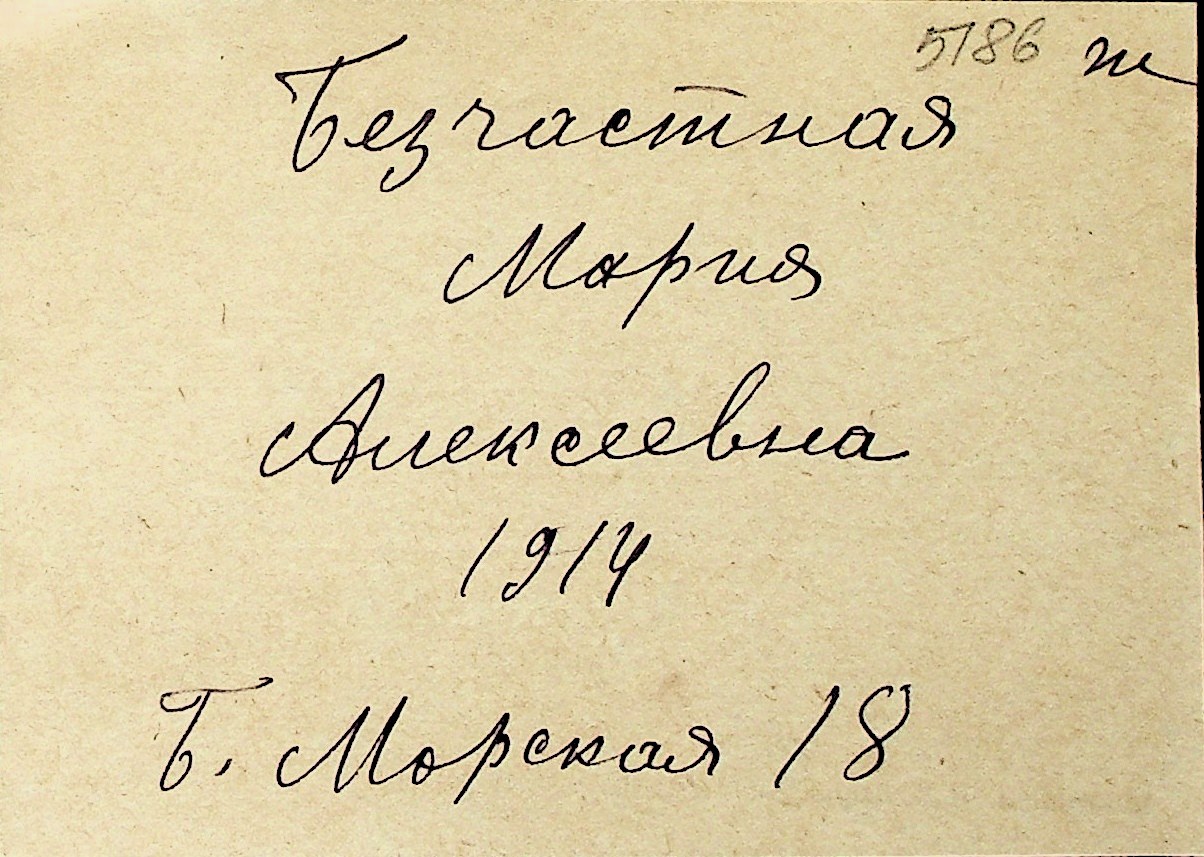 5186 ж
Безчастная
Мария
Алексеевна
1914
Б. Морская 18